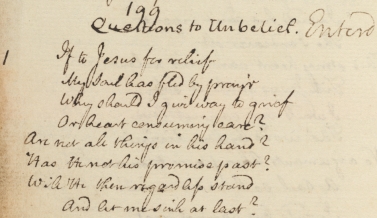 199
Questions to Unbelief. Enterd
1 If to Jesus for relief
My Soul has fled by pray'r
Why should I give way to grief
Or heart consuming care?
Are not all things in his hand?
Has He not his promise past?
Will He then regardless stand
And let me sink at last?